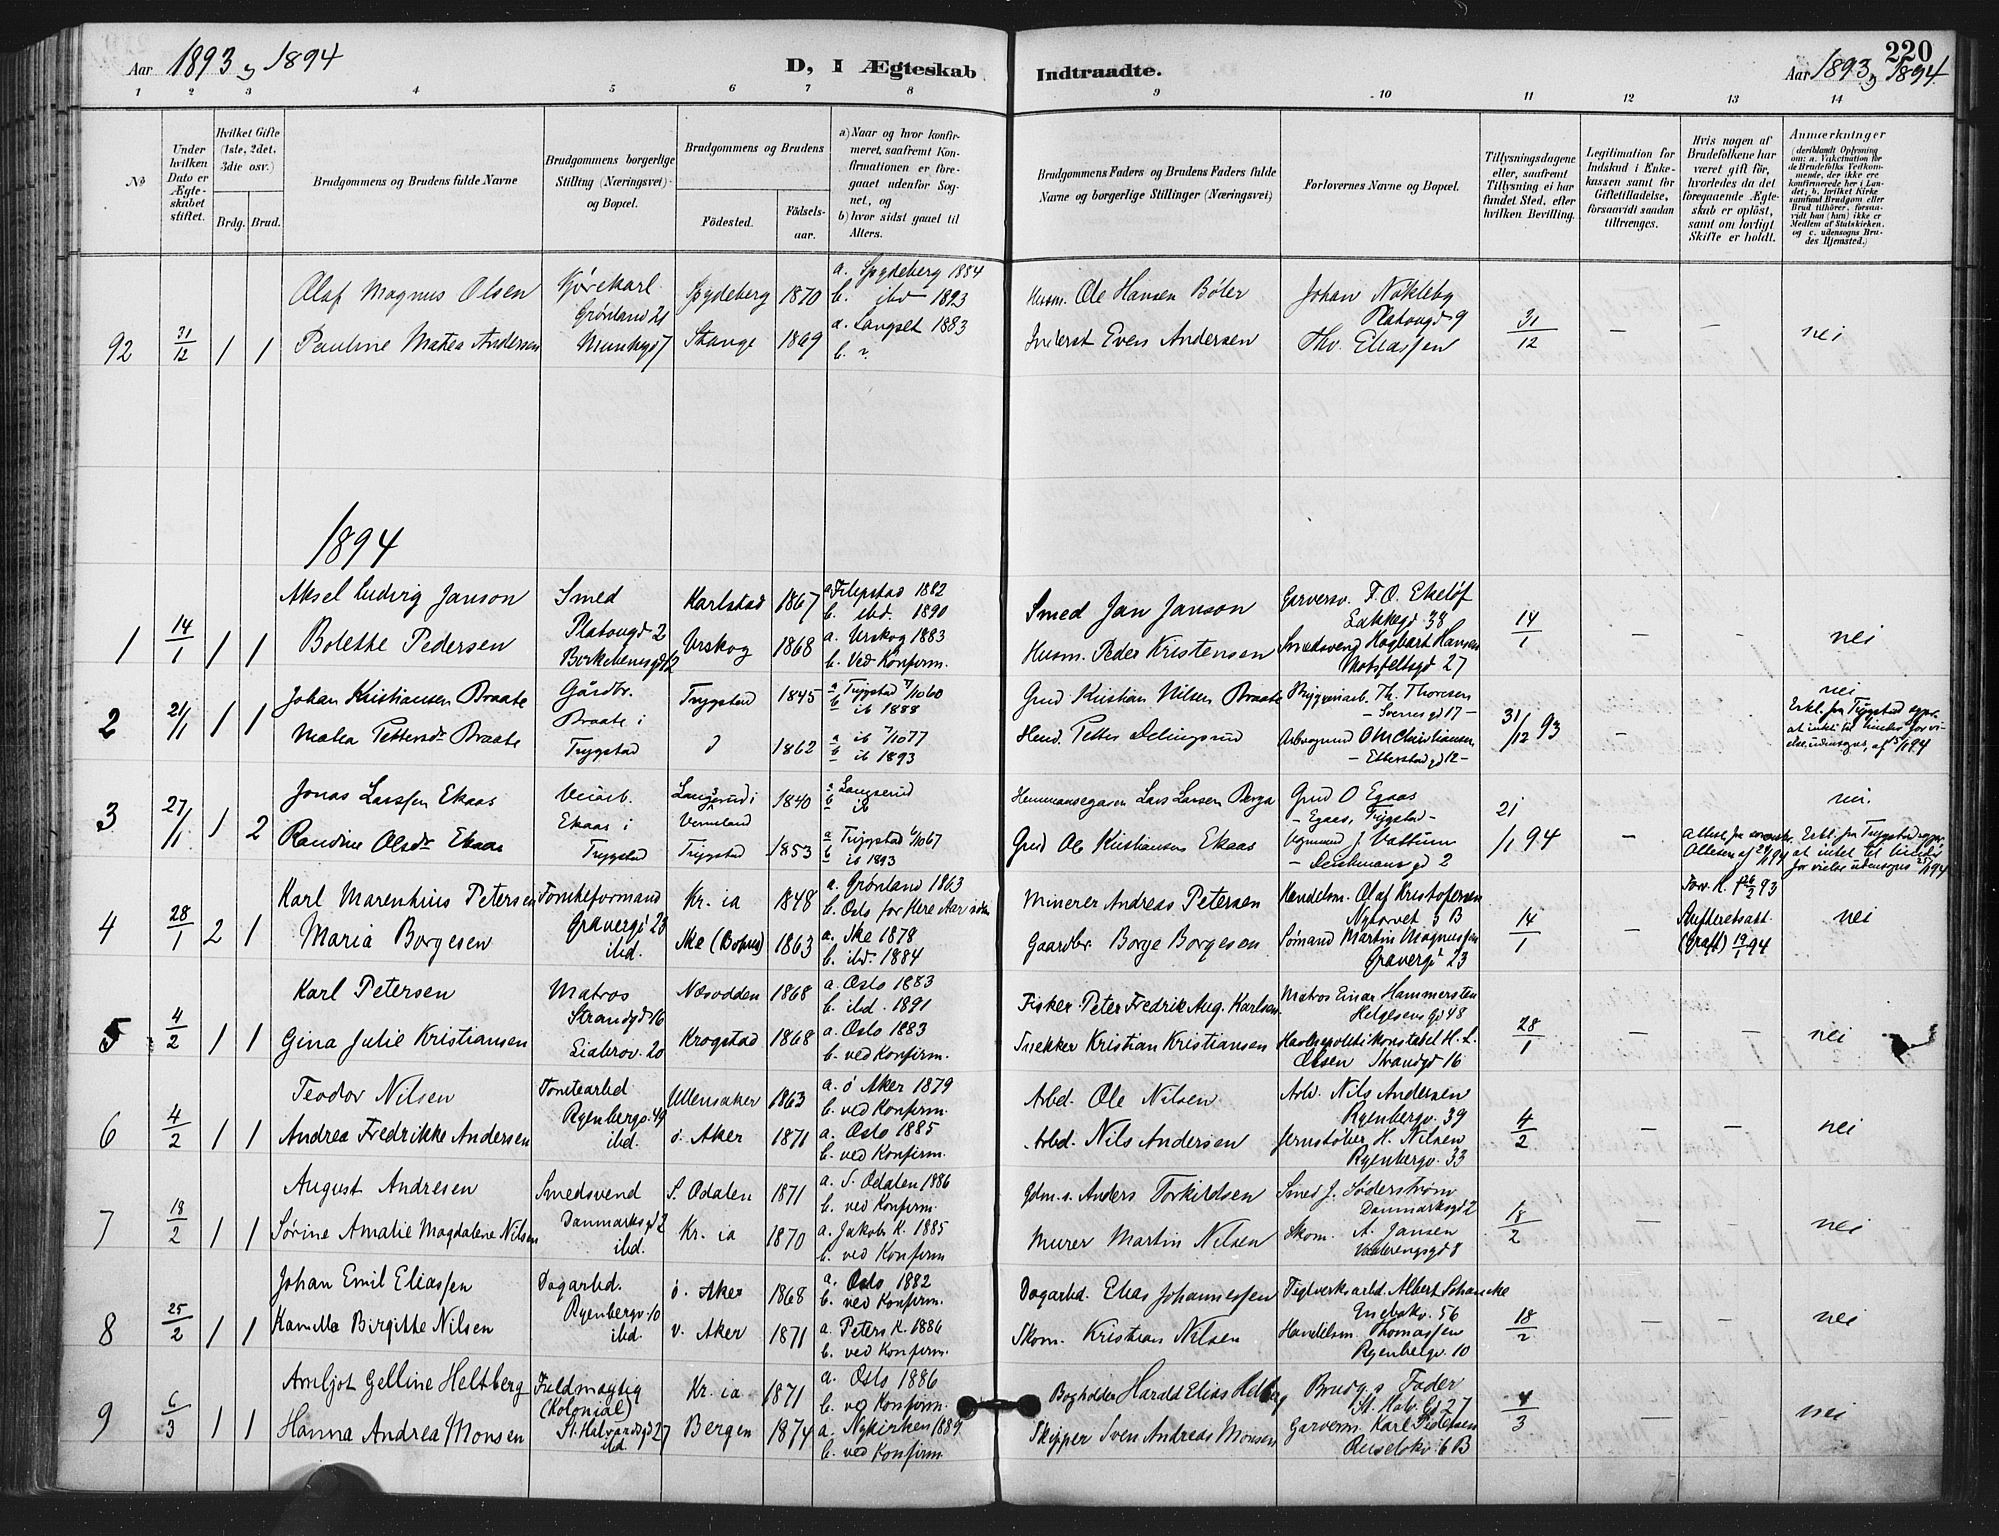 Aar 1893 og 1894
D, I Ægteskab Indtraadte.
220
Aar 1893 og 1894
1 2 3 4 5 6 7 8 9 10 11 12 13 14
No
Under hvilken Dato er Ægteskabet stiftet.
Hvilket Gifte (1ste, 2det, 3die osv.)
Brdg. Brud.
Brudgommens og Brudens fulde Navne
Brudgommens borgerlige Stilling (Næringsvei) og Bopæl.
Brudgommens og Brudens
Födested. Födselsaar.
a) Naar og hvor konfirmeret, saafremt Konfirmationen er foregaaet udenfor Sognet, og
b) hvor sidst gaaet til Alters.
Brudgommens Faders og Brudens Faders fulde Navne og borgerlige Stillinger (Næringsvei)
Forlovernes Navne og Bopæl.
Tillysningsdagene eller, saafremt Tillysning ei har fundet Sted, efter hvilken Bevilling.
Legitimation for Indskud i Enkekassen samt for Giftetilladelse, forsaavidt saadan tiltrænges.
Hvis nogen af Brudefolkene har været gift för, hvorledes da det foregaaende Ægteskab er oplöst, samt om lovligt Skifte er holdt.
Anmærkninger (deriblandt Oplysning om: a. Vakcination for de Brudefolks Vedkommende, der ikke ere konfirmerede her i Landet; b. hvilket Kirkesamfund Brudgom eller Brud tilhörer, forsaavidt han (hun) ikke er Medlem af Statskirken, og c. udensogns Brudes Hjemsted.)
Olaf Magnus Olsen Kjørekarl Spydeberg 1870 a. Spydeberg 1884 Husm. Ole Hansen Bøler Johan Nøkleby
Grønland 21 b. ibd 1893 Platougd 9
92 31/12 1 1 Pauline Matea Andersen Munkegd 7 Stange 1869 a. Langset 1883 Inderst Even Andersen Thv. Eliassen 31/12 – – nei
b. ?
1894
Aksel Ludvig Janson Smed Karlstad 1867 a. Filipstad 1882 Smed Jan Janson Garversv. F. O. Ekeløf
Platougd 2 b. ibd. 1890 Lakkegd 38
1 14/1 1 1 Bolethe Pedersen Birkebeinsgd 12 Urskog 1868 a. Urskog 1883 Husm. Peder Kristensen Smedsvend Hagbart Hansen 14/1 – – nei
b. Ved Konfirm. Motzfeltsgd 27
Johan Kristiansen Braate Gårdbr. Trygstad 1845 a Trygstad 7/10 60 Grd Kristian Nilsen Braate Th. Thoresen nei
b ib 1888 – Sverresgd 17 –
2 21/1 1 1 Matea Pettersdr Braate Braate i Trygstad 1862 a ib 7/10 77 Petter Delingsrud O M Christiansen 31/12 93 – Erkl. fra Trygstad
b ib 1893 – Etterstadgd 12 –
Jonas Larssen Ekaas Veiarb. Langserud i Vermland 1840 a Langserud Lars Larsen Berga Grd O Egaas nei.
b ib – Egaas, Trygstad –
3 27/1 1 2 Randine Olsdr Ekaas Ekaas i Trygstad Trygstad 1853 a Trygstad 6/10 67 Grd Ole Kristiansen Ekaas J. Vattum 21/1 94 – Erkl. fra Trygstad
b ib 1893 – Deichmansgd 2
Karl Marenhius Petersen Tomteformand Kr. ia 1848 a. Grønland 1863 Minerer Andreas Petersen Handelsm. Olaf Kristofersen
Gravergd 23 b. Oslo for flere Aar siden Nytorvet 3 B
4 28/1 2 1 Maria Borgesen ibd. Ske (Bohus) 1863 a. Ske 1878 Gaardbr Borge Borgesen Sømand Martin Magnussen 14/1 – Skifteretsatt. 19/1 94 nei
b. ibd. 1884 Gravergd 23
Karl Petersen Matros Næsodden 1868 a. Oslo 1883 Fisker Peter Fredrik Aug. Karlsen Matros Einar Hammersten
Strandgd 16 b. ibd. 1891 Helgesens gd 48
5 4/2 1 1 Gina Julie Kristiansen Liabrov. 20 Krogstad 1868 a. Oslo 1883 Snekker Kristian Kristiansen Havnepolitikonstabel H. L. Olsen Strandgd 16 28/1 – – nei
b. ved Konfirm.
Teodor Nilsen Tomtearbd Ullensaker 1863 a. ø Aker 1879 Arbd. Ole Nilsen Arb. Nils Andersen
Ryenbergv. 49 b. ved Konfirm. Ryenbergv. 39
6 4/2 1 1 Andrea Fredrikke Andersen ibd. ø. Aker 1871 a. Oslo 1885 Arbd. Nils Andersen Jernstøber H. Nilsen 4/2 – – nei
b. ved Konfirm. Ryenbergv. 33
August Andresen Smedsvend S. Odalen 1871 a. S. Odalen 1886 Gdm. s. Anders Torkildsen Smed J. Söderstrøm
Danmarksgd 2 b. ved Konfirm. Danmarksgd 2
7 18/2 1 1 Sørine Amalie Magdalene Nilsen ibd. Kr. ia 1870 a. Jakobs K. 1885 Murer Martin Nilsen Skom. A. Jansen 18/2 – – nei
b. ved Konfirm Vaalerengsgd 8
Johan Emil Eliassen Dagarbd. ø. Aker 1868 a. Oslo 1882 Dagarbd. Elias Johannessen Teglverksarbd. Albert Schancke
Ryenbergv. 10 b. ved Konfirm. Enebakv. 56
8 25/2 1 1 Kamilla Birgitte Nilsen ibd. v. Aker 1871 a. Peters K. 1886 Skom. Kristian Nilsen Handelsm. Thomassen 18/2 – – nei
b. ved Konfirm. Ryenbergv. 10
Arnljot Gelline Heltberg Fuldmægtig Kr. ia 1871 a. Oslo 1886 Bogholder Harald Elias Heltberg Brudg. s Fader
(Kolonial) b. ved Konfirm. St. Halv. Gd 27
9 6/3 1 1 Hanna Andrea Monsen St. Halvardsgd 27 Bergen 1874 a. Nykirken 1889 Skipper Sven Andreas Monsen Garverm. Karl Pedersen 4/3 – – nei
ibd b. ved Konfirm. 6 B